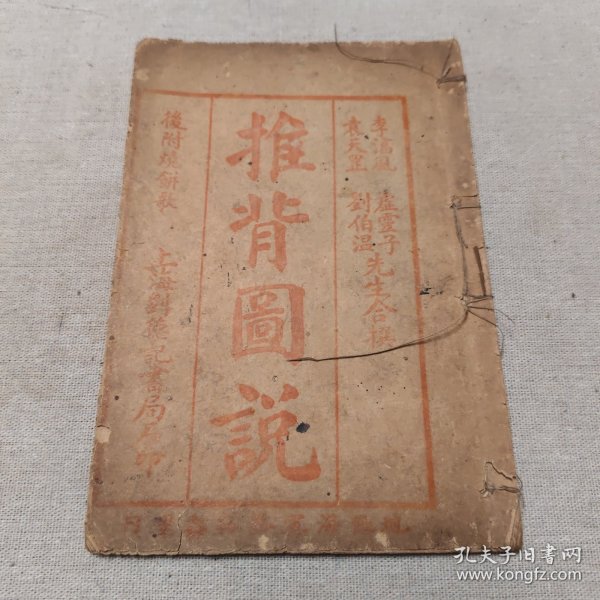 李淳風 虛靈子
袁天罡 劉伯溫 先生合撰
推背圖說
後附燒餅歌
上海錦章記書局石印
孔夫子旧书网
www.kongfz.com